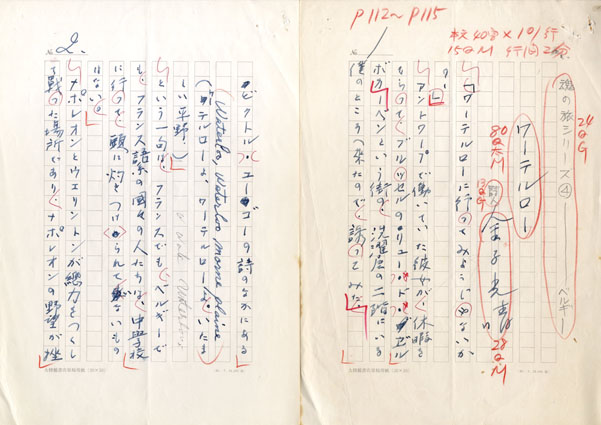 P112〜P115
本文 40字×101行
15Q M 行間2分
24Q G
魂の旅シリーズ④ ベルギー
ワーテルロー
80Q 大M
13Q G
詩人
金子光晴
28Q M
「ワーテルローに行ってみようじゃないか
の」
アントワープで働いていた彼女が、休暇を
もらって、ブルッセルのリュー・ド・
ボーヘンという街の、洗濯屋の二階にいる
僕のところへ来たので、誘ってみた。
No. 2.
ビクトル・ユーゴーの詩のなかにある
Waterloo, Waterloo morne plaine
(ワーテルローよ、ワーテルローよ、いたま
しい平野!)
という一句は、フランスでも、ベルギーで
も、フランス語系の国々の人たちは、中学校
に行って頭に灼きつけられてないもの
はない。
ナポレオンとウエリントンが総力をつくし
て戦った場所であり、ナポレオンの野望が挫